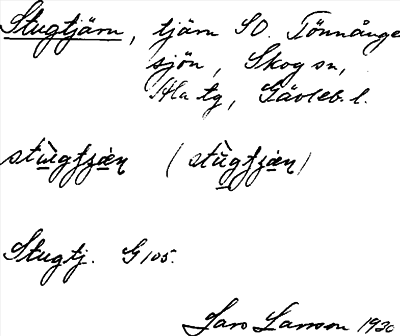 Stugtjärn, tjärn SO. Tönnånge
sjön, Skog sn,
Hla tg, Gävleb. l.
stùgtjæ̀ṇ (stùgtjæṇ)
Stugtj. G 105.
Lars Larsson 1930